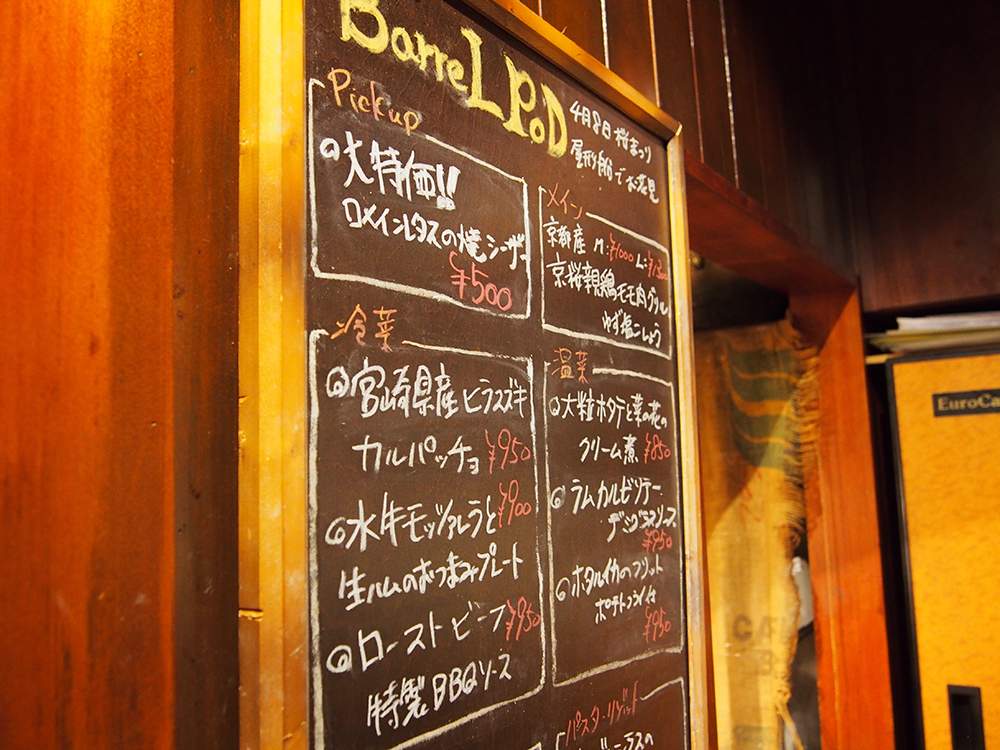 BarreL PoD
4月8日 桜まつり
屋形船でお花見
Pick up
大特価!!
ロメインレタスの焼シーザー
¥500
冷菜
宮崎県産ヒラスズキ
カルパッチョ ¥950
水牛モッツァレラと ¥900
生ハムのおつまみプレート
ローストビーフ ¥950
特製BBQソース
メイン
京都産 M:¥1000 L:¥1300
京桜親鶏モモ肉グリル
ゆず塩こしょう
温菜
大粒ホタテと菜の花の
クリーム煮 ¥850
ラムカルビソテー
デミグラスソース
¥950
ホタルイカのフリット
ポテトフライ付
¥950
パスタ・リゾット
EuroCa
CA